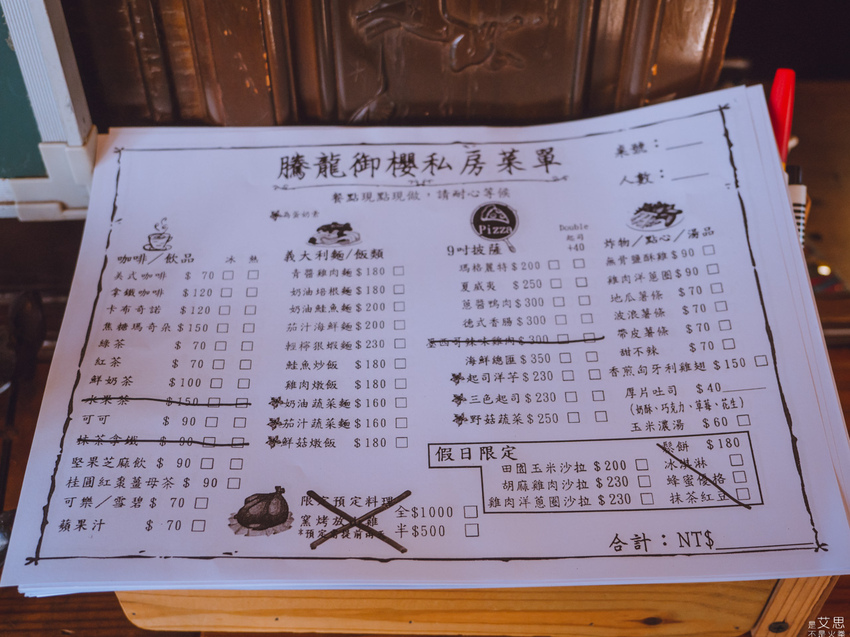 騰龍御櫻私房菜單
桌號：
人數：
餐點現點現做，請耐心等候
為蛋奶素
咖啡／飲品 冰 熱
美式咖啡 $ 70
拿鐵咖啡 $120
卡布奇諾 $120
焦糖瑪奇朵 $150
綠茶 $ 70
紅茶 $ 70
鮮奶茶 $100
水果茶 $150
可可 $ 90
抹茶拿鐵 $ 90
堅果芝麻飲 $ 90
桂圓紅棗薑母茶 $ 90
可樂／雪碧 $ 70
蘋果汁 $ 70
義大利麵／飯類
青醬雞肉麵 $180
奶油培根麵 $180
奶油鮭魚麵 $200
茄汁海鮮麵 $200
輕檸銀蝦麵 $230
鮭魚炒飯 $180
雞肉燉飯 $180
奶油蔬菜麵 $160
茄汁蔬菜麵 $160
鮮菇燉飯 $180
Pizza
9吋披薩
Double
起司
+40
瑪格麗特 $200
夏威夷 $250
蔥醬鴨肉 $300
德式香腸 $300
墨西哥辣味雞肉 $300
海鮮總匯 $350
起司洋芋 $230
三色起司 $230
野菇蔬菜 $250
炸物／點心／湯品
無骨鹽酥雞 $90
雞肉洋蔥圈 $90
地瓜薯條 $70
波浪薯條 $70
帶皮薯條 $70
甜不辣 $70
香煎匈牙利雞翅 $150
厚片吐司 $40
(奶酥、巧克力、草莓、花生)
玉米濃湯 $60
假日限定
田園玉米沙拉 $200
胡麻雞肉沙拉 $230
雞肉洋蔥圈沙拉 $230
鬆餅 $180
冰淇淋
蜂蜜優格
抹茶紅豆
限定預定料理
窯烤放山雞
全$1000
半$500
合計：NT$
艾思
是
不是火車